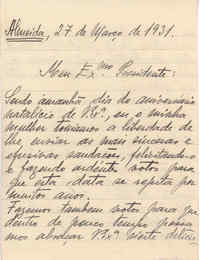 Almeida, 27 de Março de 1931.
Meu Ex.mo Presidente:
Sendo amanhã, dia do aniversário
natalício de V.Ex.ª, eu e minha
mulher tomamos a liberdade de
lhe enviar as mais sinceras e
efusivas saudações, felicitando-o
e fazendo ardentes votos para
que esta data se repita por
muitos anos.
Fazemos também votos para que
dentro de pouco tempo possa-
mos abraçar V.Ex.ª neste